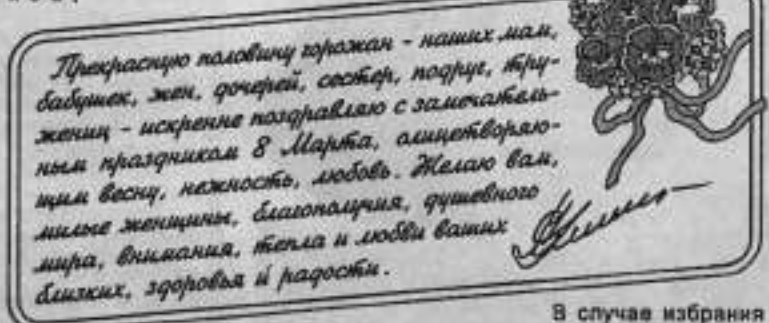 Прекрасную половину горожан - наших мам,
бабушек, жен, дочерей, сестер, подруг, тру-
жениц - искренне поздравляю с замечатель-
ным праздником 8 Марта, олицетворяю-
щим весну, нежность, любовь. Желаю вам,
милые женщины, благополучия, душевного
мира, внимания, тепла и любви ваших
близких, здоровья и радости.
В случае избрания